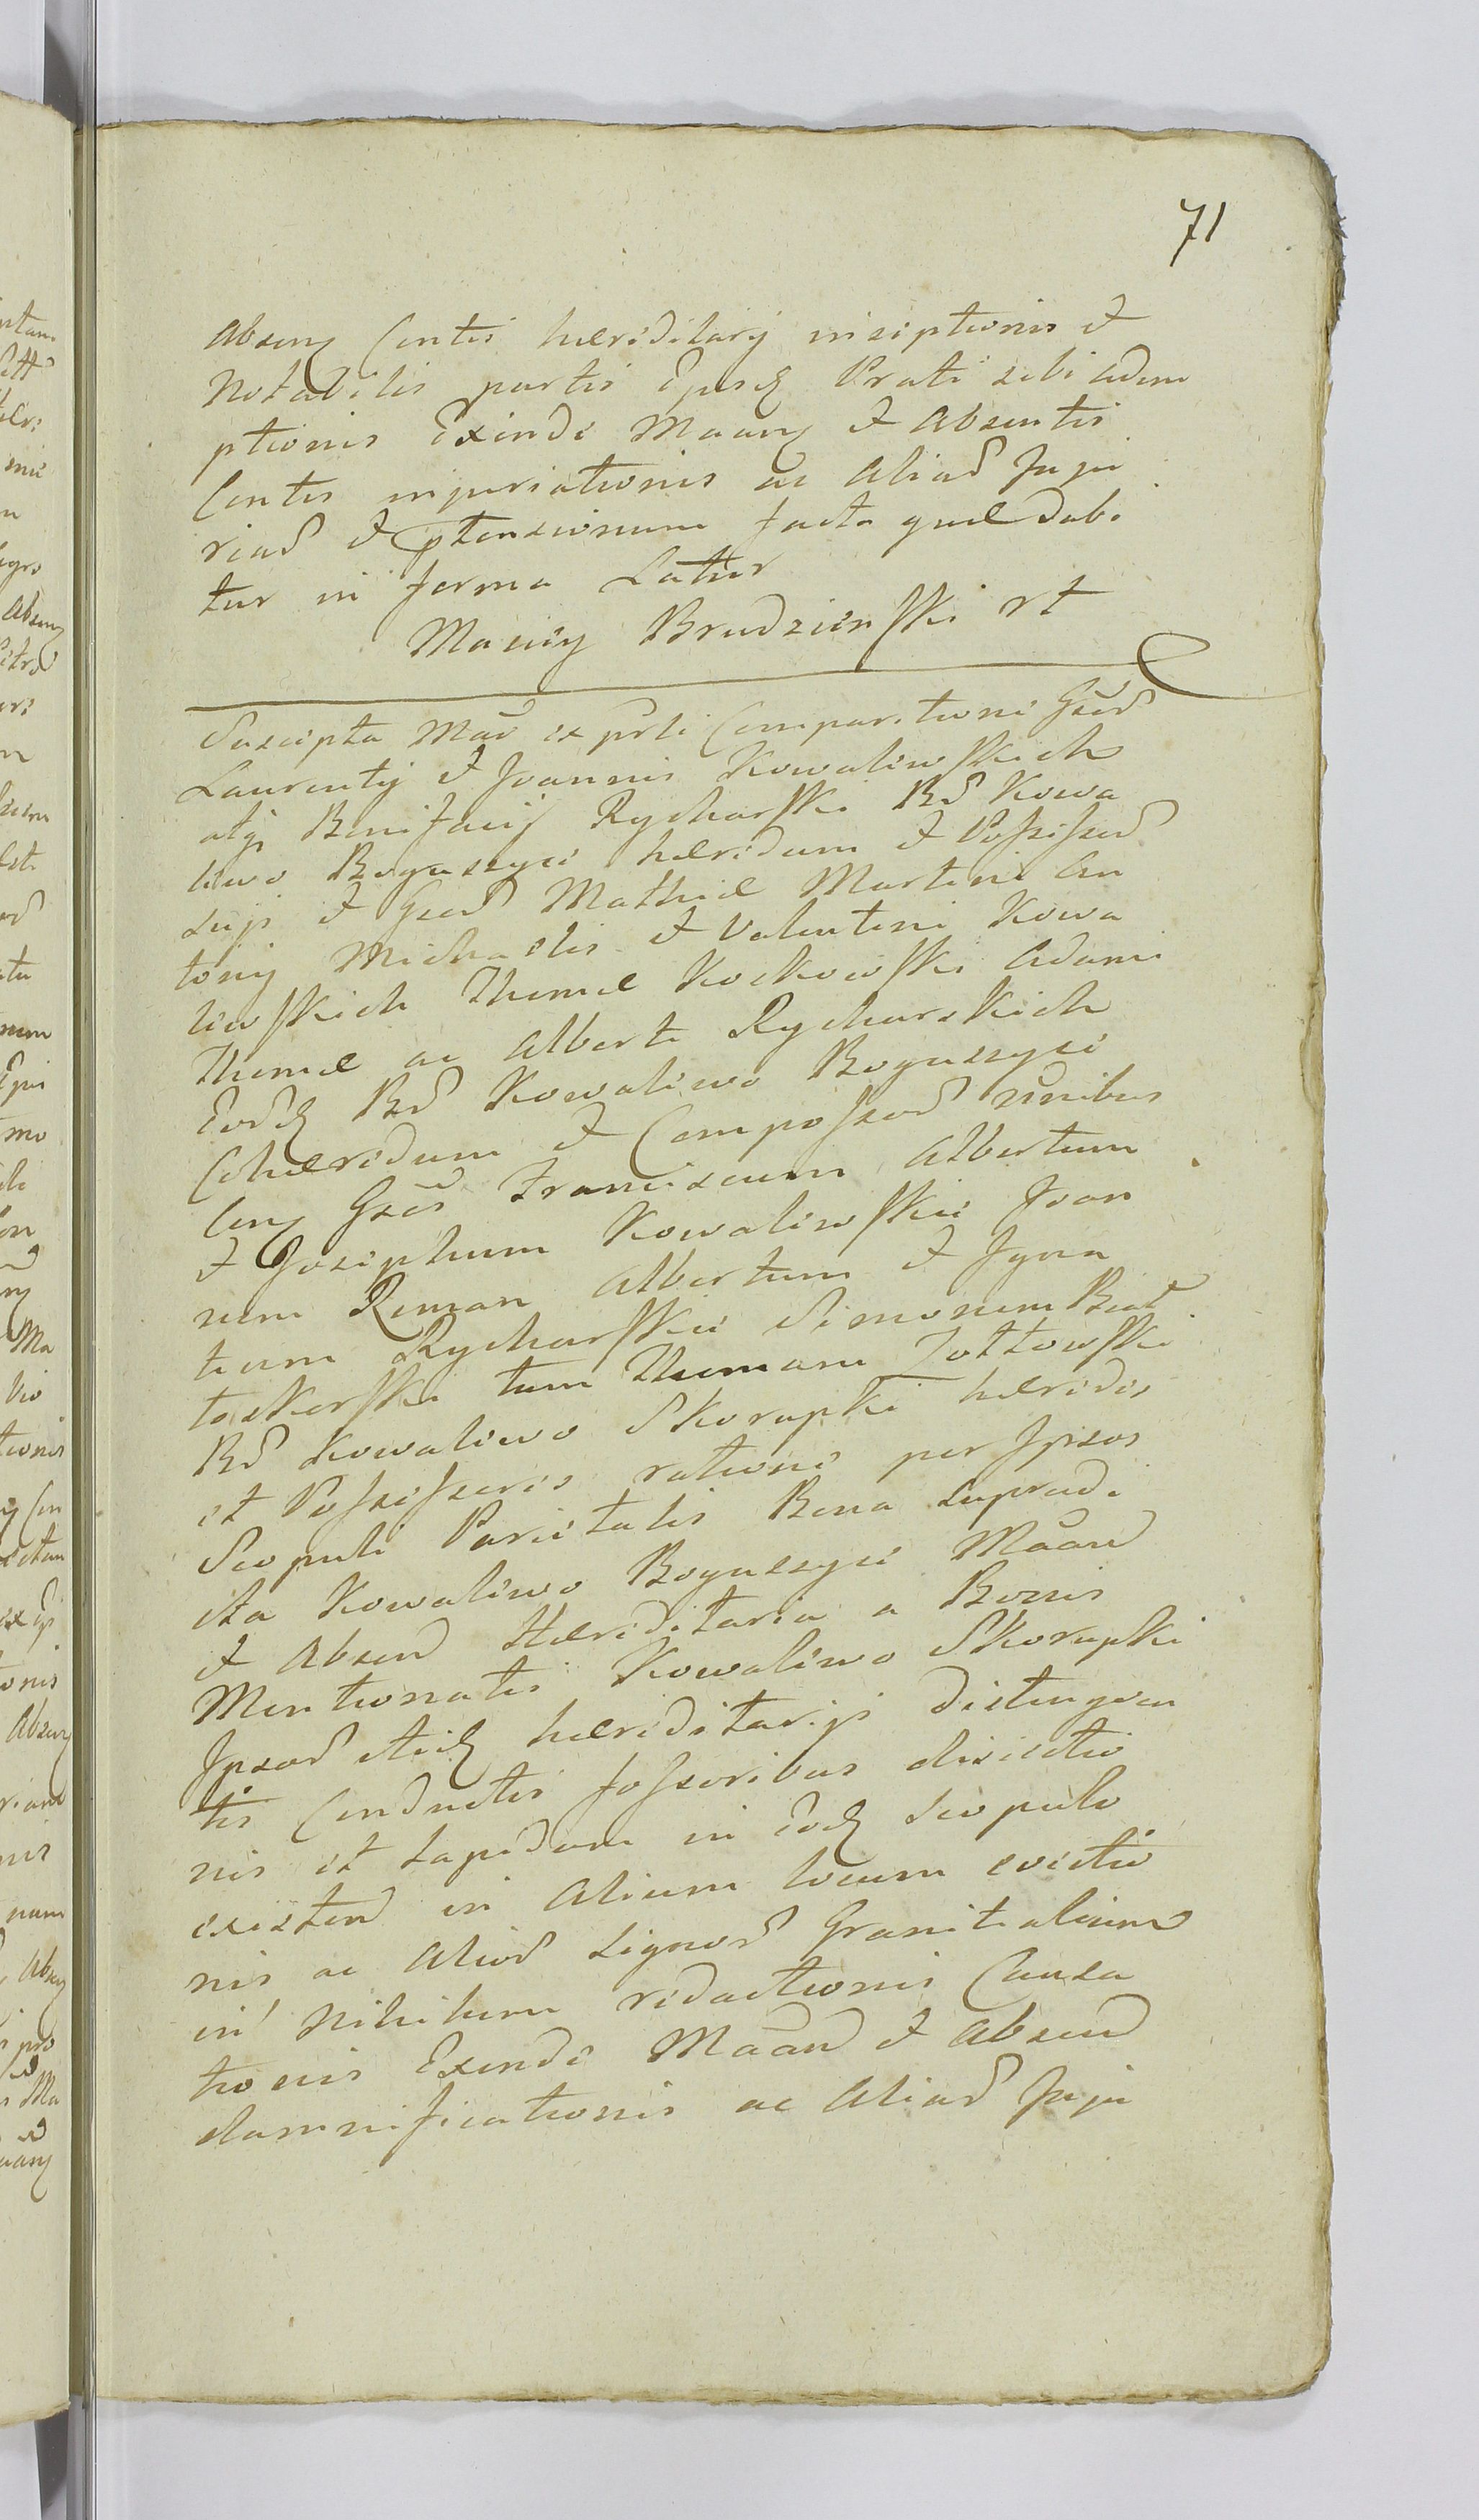 71
Absenq Contis haeriditarij inciptionis et
Notabilis partis Ejusdq Prati sibi adem
ptionis Exinde Maanq et Absentis
Contis injuriationis ac Aliar Inju
riar et ptensionum facta quae dabi
tur in forma Latiır
Maciey Brudzienski rt
Suscipta Mao ex prti Comparitione Gser
Laurentij et Joannis Kowaliewskich
atq Bonifacij Rycharski Br Kowa
liewo Boguszyce haeridum et Possessor
suji et Gser Mathiae Martini An
tonij Michaelis et Valentini Kowa
liewskich Thomae Kockowski Adami
Thomae ac Alberti Rycharskich
Eordq Br Kowaliwo Boguszyce
Cohaeridum et Compossor ıınibus
Conq Gses Franciscum Albertum
et Josephum Kowaliewskie Joan
nem Roman Albertum et Igna
tium Rycharskie Simonem Biał
toskorski tum Thomam Zołtowski
Br Kowaliwo Skorupki haeridis
et Possessoris rationi per Ipsos
Scopuli Parietalis Bona supradi
cta Kowaliwo Boguszyce Maan
et Absen Haeriditaria a Bonis
Mentionatis Kowaliwo Skorupki
Ipsor aticq haeriditarijs distingven
tis Conductis fossoribus disiectio
nis et Lapidum in Eodq Scopulo
existen in Alium locum evectio
nis ac Alior Signor Granitialium
in Nihilum redactionis Causa
tionis Exinde Maan et Absen
damnificationis ac Aliar Inju